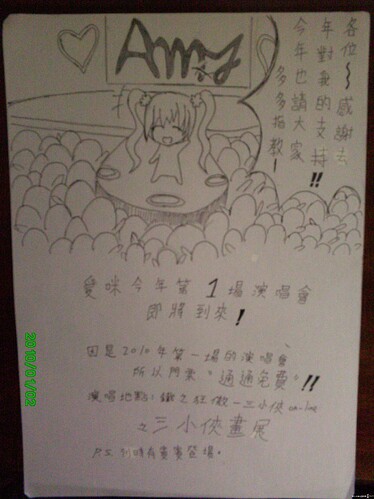 Amy
各位~感謝去
年對我的支持!!
今年也請大家
多多指教!
愛咪今年第1場演唱會
即將到來!
因是2010年第一場的演唱會、
所以門票“通通免費”!!
演唱地點:鐵之狂傲-三小俠on-line
之三小俠畫展
P.S. 有賓賓登場。
2010/01/02